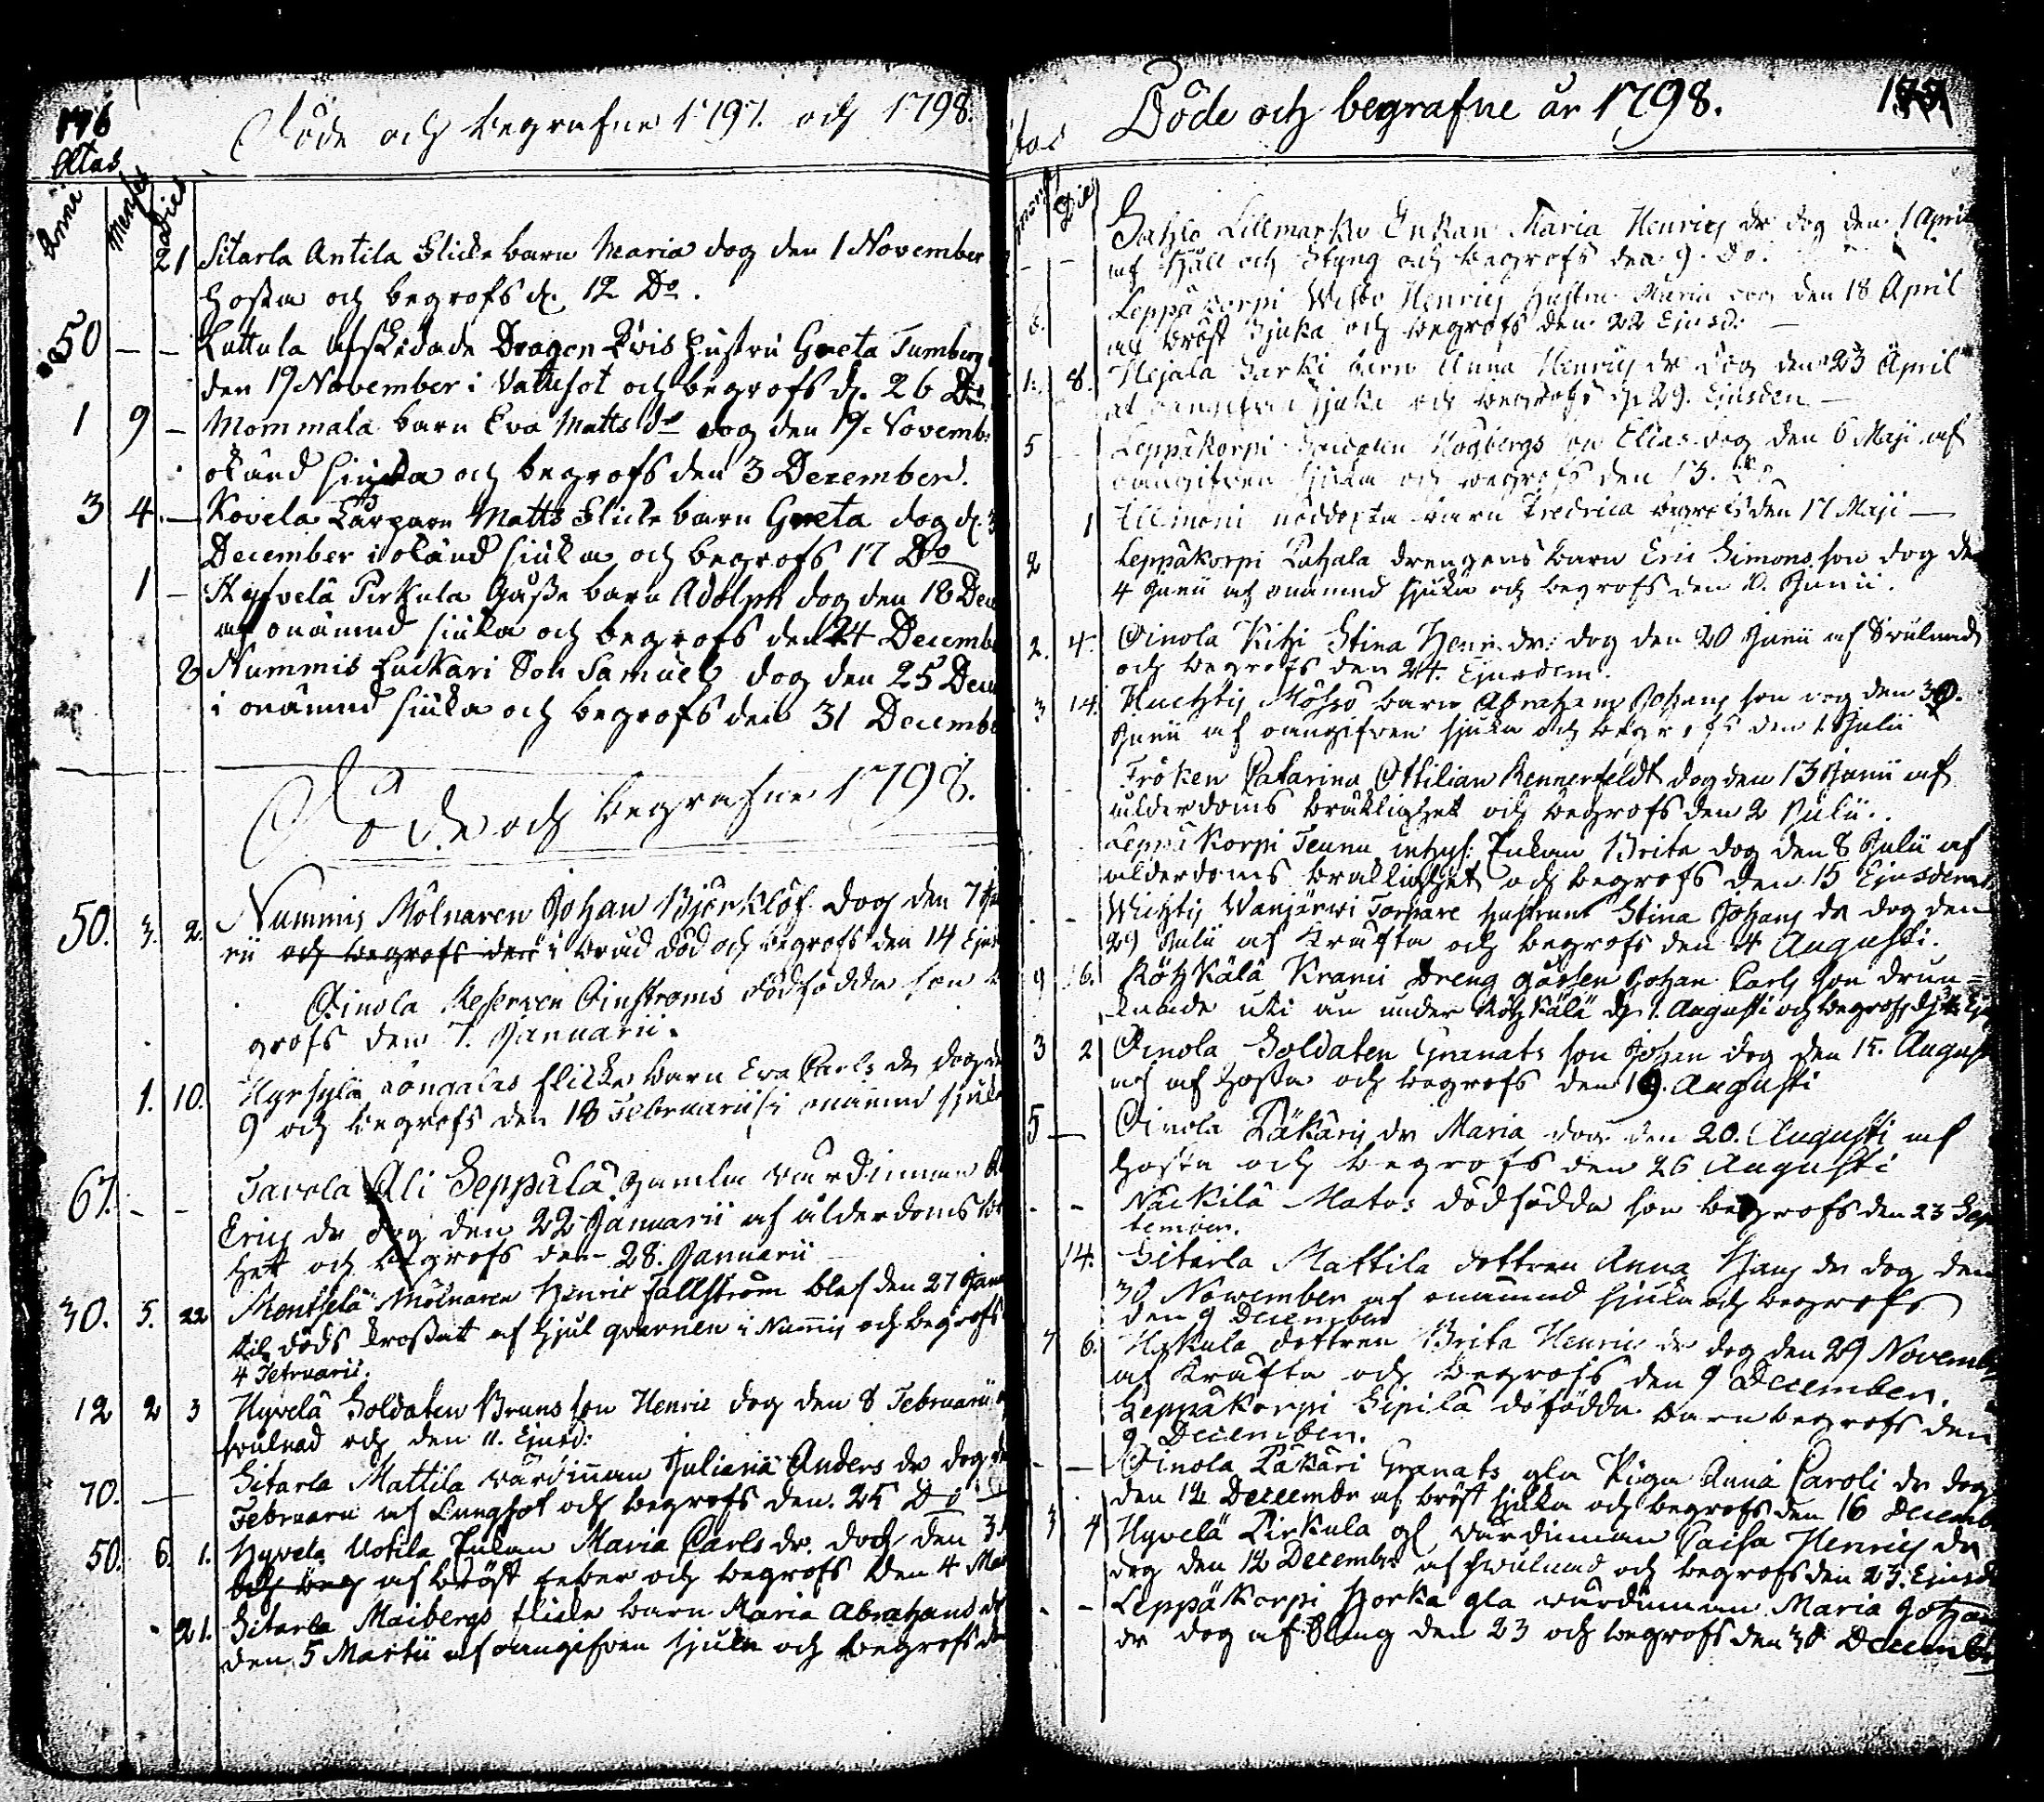 176
Döde och begrafne 1797. och 1798.
Ætas
Anni Mens. Dies
21 Sitarla Antila Flicke barn Maria dog den 1 November
hosta och begrofs d. 12 Do.
50 — — Luttula afskedade Dragon Qvis hustru Greta Tumberg
den 19 November i Vattusot och begrofs d. 26 Do
1 9 — Mommala barn Eva Matts dr dog den 19 Novemb
okänd siuka och begrofs den 3 Dezember.
3 4 — Kovela Matts Flicke barn Greta dog d. 3
December i okänd siuka och begrofs 17 Do
1 — Hyfvelä Pirkula Gosse barn Adolph dog den 18 Dec
af onämnd siuka och begrofs den 24 Decemb
2 Nummis Luckari Son Samuel dog den 25 Dec
i onämnd siuka och begrofs den 31 Decemb
Döde och begrafne 1798.
50. 3. 2. Nummis Mölnaren Johan Björklöf dog den 7
rii och begrofs den i bråd död och begrofs den 14 Ejusd
Oinola Reserven Einströms dödfödda son be
grofs den 7. Januarii.
1. 10. Hyrsylä flicke barn Eva Carls dr dog d
9 och begrofs den 18 Februarii i onämnd sjuk
67. — — Tavola Ali Seppälä gamla värdinnan
Erics dr dog den 22 Januarii af ålderdoms
het och begrofs den 28. Januarii
30. 5. 22 Montjelä Mölnaren Henric Fallström blef den 27 Jan
til döds krossat af hjul qvarnen i Nummis och begrofs
4 Februarii.
12 2 3 Hyvelä Soldaten Bruns son Henric dog den 8 Februarii
svulnad och den 11. Ejusd:
70. — Sitarla Mattila värdinnan Juliana Anders dr dog d
Februarii af Lungsot och begrofs den 25 Do
50. 6. 1. Hyvelä Uotila Enkan Maria Carls dr. dog den 3
och beg af bröst feber och begrofs den 4 Ma
21. Sitarla Maibergs flicke barn Maria Abrahams dr
den 5 Martii af oangifven sjuka och begrofs den
Döde och begrafne år 1798.
Mens Die
Lillmarks Enkan Maria Henrics dr dog den 1 April
af Håll och Styng och begrofs den 9. Do.
Leppäkorpi Henrics hustru Maria dog den 18 April
af bröst Sjuka och begrofs den 22 Ejusd:
1. 8. barn Anna Henrics dr dog den 23 April
af oangifven Sjuka och begrofs d. 29. Ejusdem
5 Leppäkorpi Högbergs son Elias dog den 6 Maji af
oangifven sjuka och begrofs den 13. Do
1 nöddöpta barn Fredrica begrofs den 17 Maji
2 Leppäkorpi drengens barn Eric Simons son dog den
4 Junii af onämnd sjuka och begrofs den Junii.
2. 4. Oinola Kihi Stina Henr. dr: dog den 20 Junii af Svulnad
och begrofs den 24. Ejusdem.
3 14. barn Abraham Johans son dog den 30.
Junii af oangifven sjuka och begrofs den 1 Julii
Fröken Catarina Ottilian Rennerfeldt dog den 13 Junii af
ålderdoms bräklighet och begrofs den 2 Julii.
Leppäkorpi Teunu inhys: Enkan Brita dog den 8 Julii af
ålderdoms bräklighet och begrofs den 15 Ejusdem
Wichtis Wanjärwi Torpare hustrun Stina Johans dr dog den
29 Julii af Kräfta och begrofs den 4 Augusti.
9 16. Röhkälä Krami Dreng gåssen Johan Carls son drun=
knade uti ån under Röhkälä d. 1. Augusti och begrofs d.
3 2 Oinola Soldaten Granats son Johan dog den 15. August
af hosta och begrofs den 19. Augusti
5 — Oinola Räkäris dr Maria dog den 20. Augusti af
hosta och begrofs den 26 Augusti
— — Näckilä Mato: dödfödda son begrofs den 23 Sep
tember.
14. Sitarla Mattila dottren Anna Hans dr dog den
30 November af onämnd sjuka och begrofs
den 9 December
7 6. dottren Brita Henrics dr dog den 29 Novemb
af Kräfta och begrofs den 9 December.
Leppäkorpi Sipilä döfödda barn begrofs den
9 December.
— — Oinola Räkäri Granats gla Piga Anna Caroli dr dog
den 12 Decembr af bröst sjuka och begrofs den 16 Decemb
3 4 Hyvelä Pirkula gl värdinnan Caisa Henrics dr
dog den 12 Decembr af svulnad och begrofs den 23. Ejusd
— — Leppäkorpi Horka gla värdinnan Maria Johans
dr dog af Styng den 23 och begrofs den 30 Decemb